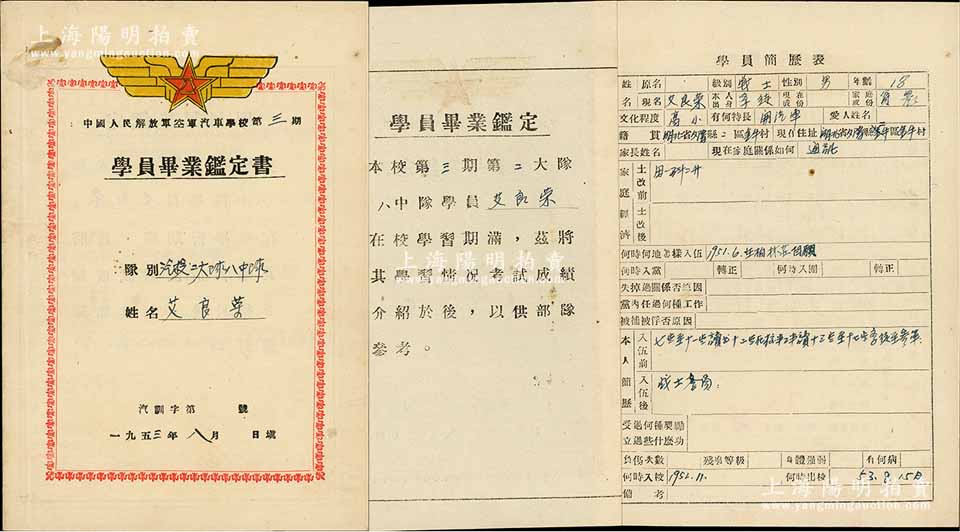 上海陽明拍賣
www.yangmingauction.com
中國人民解放軍空軍汽車學校第三期
學員畢業鑑定書
隊別 汽校二大隊八中隊
姓名 艾良榮
汽訓字第 號
一九五三年八月 日填
學員畢業鑑定
本校第三期第二大隊
八中隊學員艾良榮
在校學習期滿，茲將
其學習情況考試成績
介紹於後，以供部隊
參考。
學員簡歷表
姓 原名 級別 战士 性別 男 年齡 18
名 現名 艾良榮 本人出身 学生 現在成份 家庭成份 貧農
文化程度 高小 有何特長 開汽車 愛人姓名
籍貫 縣二區 村 現在住址 村
家長姓名 現在家庭關係如何 通訊
家庭經濟 土改前 田一科二斗
土改後
何時何地怎樣入伍 1951.6.
何時入黨 轉正 何時入團 轉正
失掉過關係否原因
黨內任過何種工作
被捕被俘否原因
本人簡歷 入伍前 七岁至十一岁讀书十二岁 十三岁至十七岁
入伍後 战士
受過何種獎勵
立過些什麽功
負傷次數 殘廢等級 身體强弱 有何病
何時入校 1952.11. 何時出校 53.8.15日
備考
上海陽明拍賣
www.yangmingauction.com